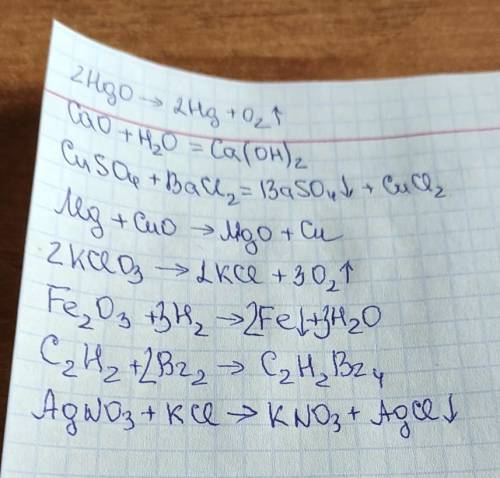 2HgO → 2Hg + O₂↑
CaO + H₂O = Ca(OH)₂
CuSO₄ + BaCl₂ = BaSO₄↓ + CuCl₂
Mg + CuO → MgO + Cu
2KClO₃ → 2KCl + 3O₂↑
Fe₂O₃ + 3H₂ → 2Fe↓ + 3H₂O
C₂H₂ + 2Br₂ → C₂H₂Br₄
AgNO₃ + KCl → KNO₃ + AgCl↓